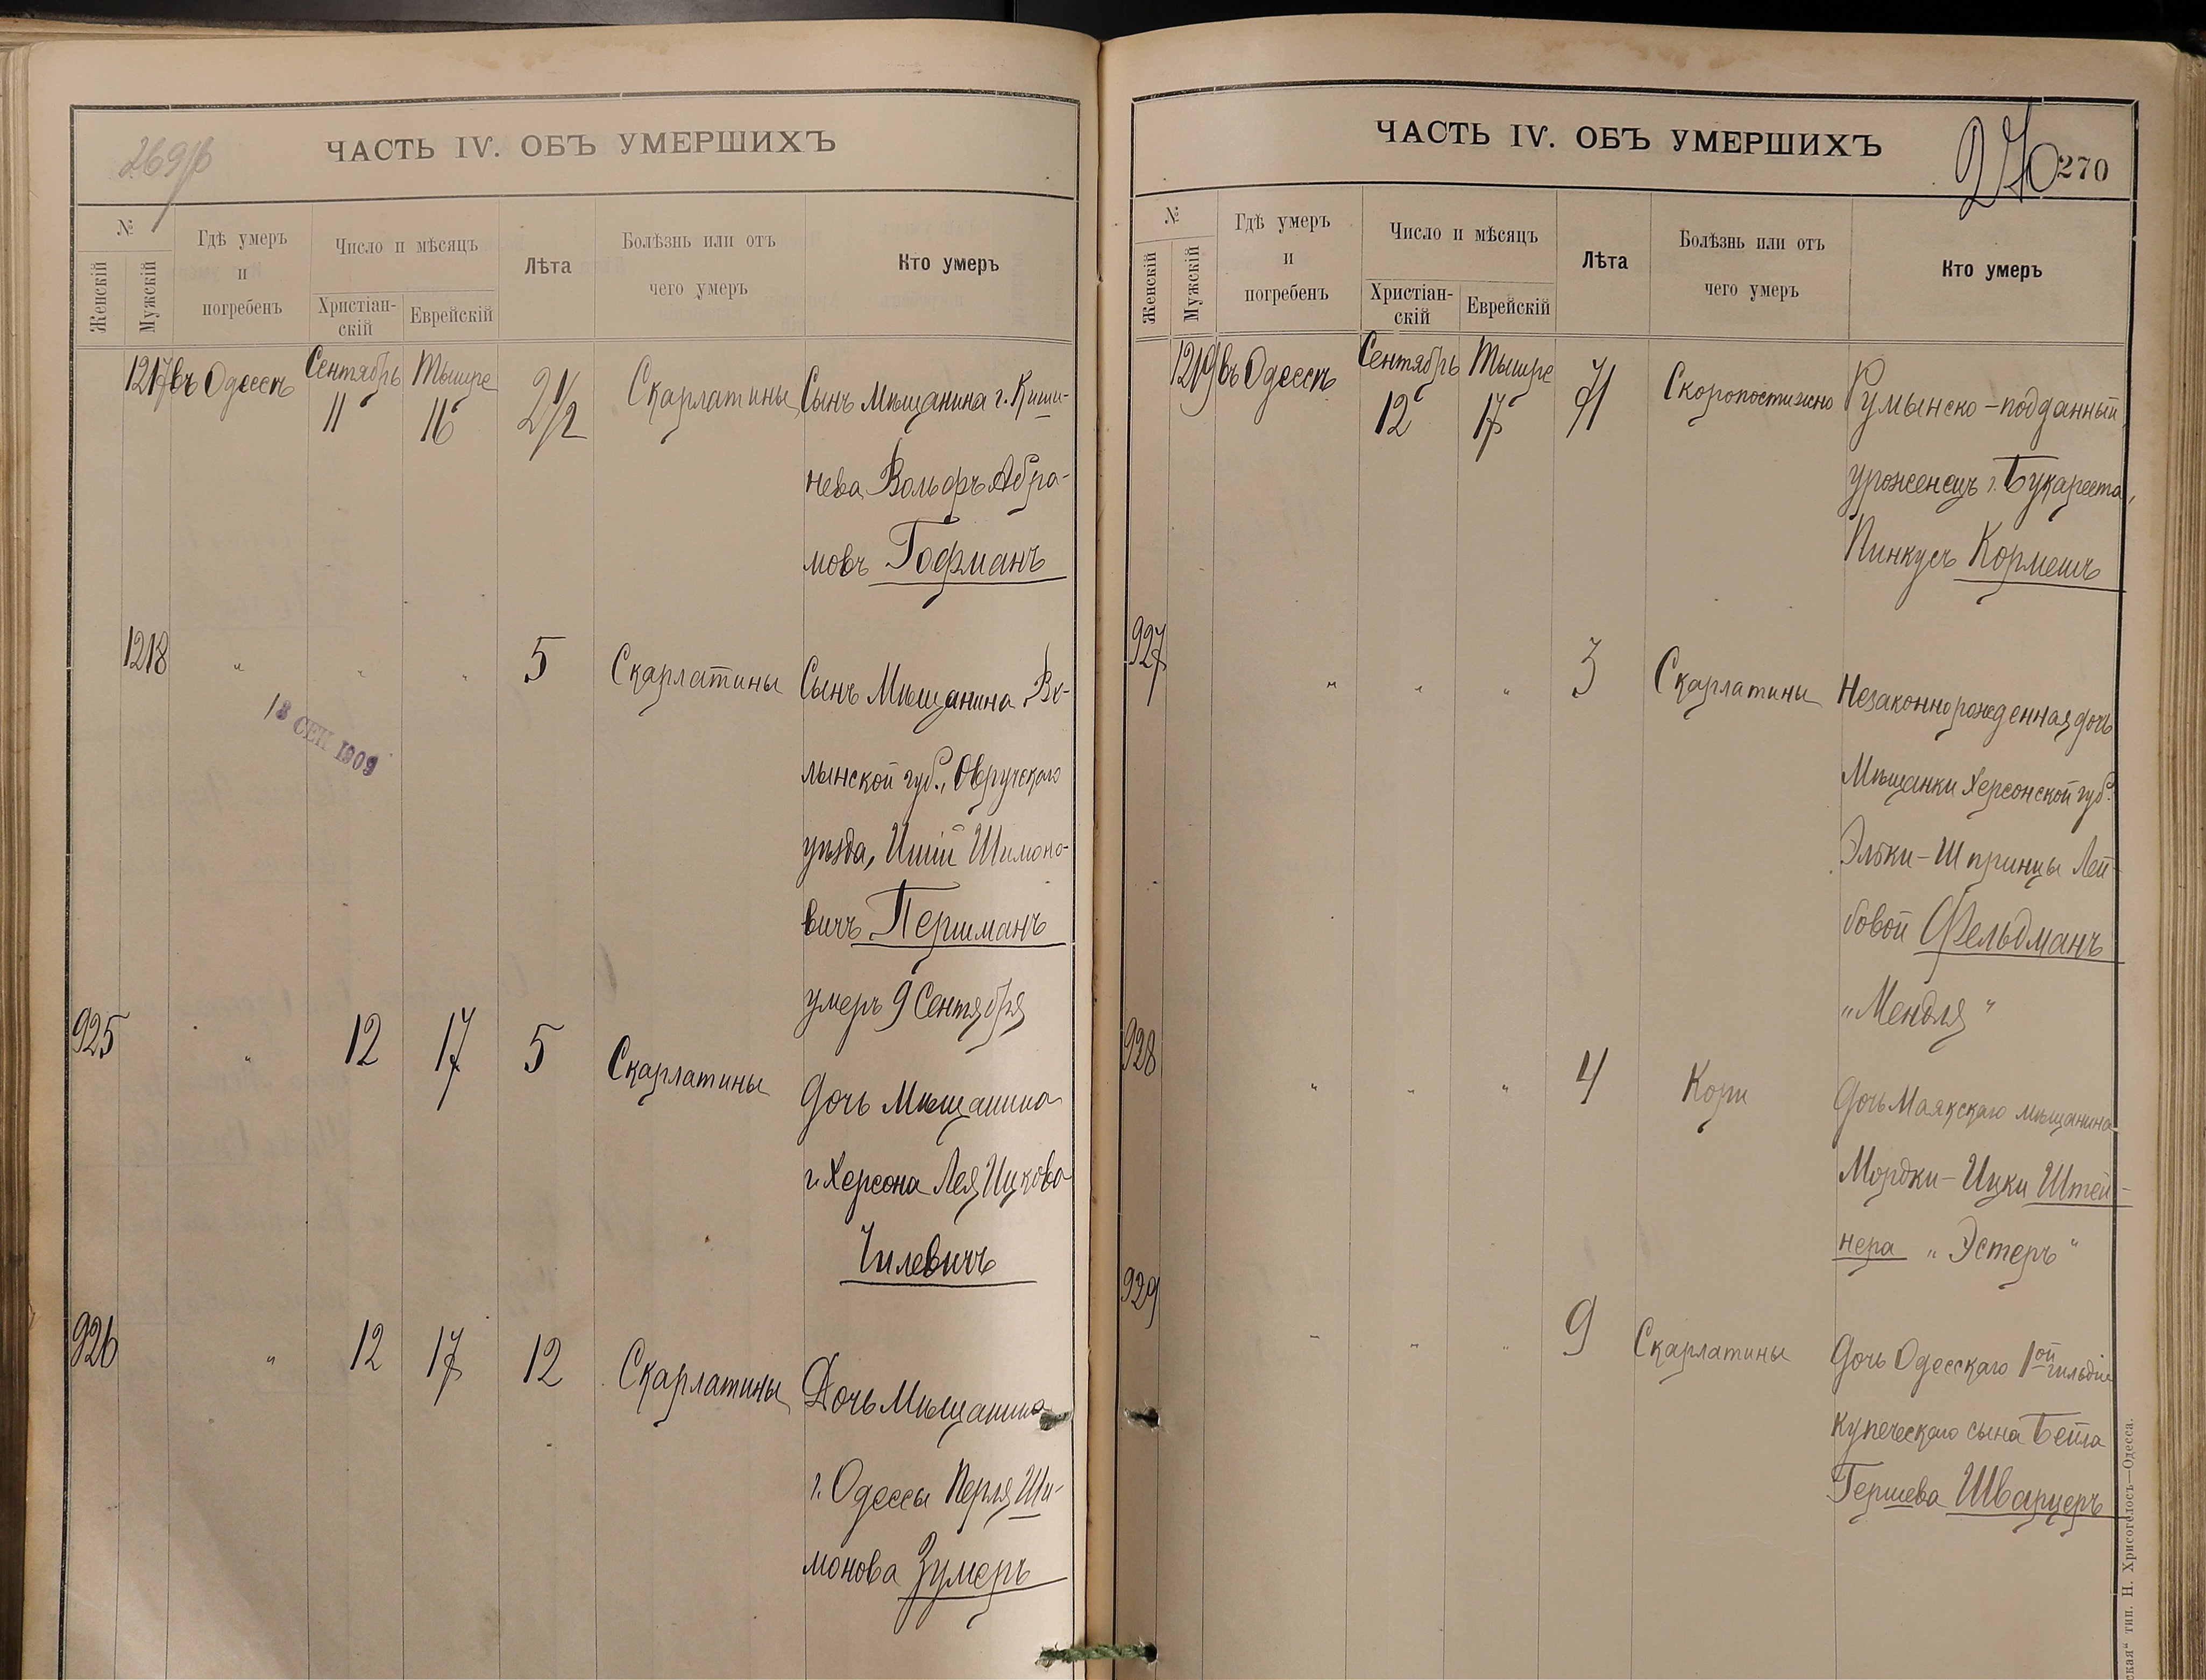 269/б
ЧАСТЬ IV. ОБЪ УМЕРШИХЪ
№
Женскій
Мужскій
Гдѣ умеръ
и
погребенъ
Число и мѣсяцъ
Христіан-
скій
Еврейскій
Лѣта
Болѣзнь или отъ
чего умеръ
Кто умеръ
1217 въ Одессѣ Сентябрь 11 Тышре 16 2 1/2 Скарлатины Сынъ Мѣщанина г. Киши-
нева Вольфъ Абра-
мовъ Гофманъ
1218 " " " 5 Скарлатины Сынъ Мѣщанина Во-
лынской губ., Овручскаго
уѣзда, Шимоно-
вичъ Першманъ
умеръ 9 Сентября
13 СЕН 1909
925 " 12 17 5 Скарлатины Дочь Мѣщанина
г. Херсона Лея Ицкова
Чилевичъ
926 " 12 17 12 Скарлатины Дочь Мѣщанина
г. Одессы Перля Ши-
монова Зумеръ
ЧАСТЬ IV. ОБЪ УМЕРШИХЪ
270 270
№
Женскій
Мужскій
Гдѣ умеръ
и
погребенъ
Число и мѣсяцъ
Христіан-
скій
Еврейскій
Лѣта
Болѣзнь или отъ
чего умеръ
Кто умеръ
1219 въ Одессѣ Сентябрь 12 Тышре 17 71 Скоропостижно Румынско-подданный
уроженецъ г. Букареста,
Пинкусъ Кормешъ
927 " " " 3 Скарлатины Незаконнорожденная дочь
Мѣщанки Херсонской губ.
Эльки-Шпринцы Лей-
бовой Фельдманъ
"Мендля"
928 " " " 4 Кори Дочь Маякскаго мѣщанина
Мордки-Ицки Штей-
нера "Эстеръ"
929 " " " 9 Скарлатины Дочь Одесскаго 1ой гильдіи
купеческаго сына Бейла
Гершева Шварцеръ
ская" тип. Н. Хрисогелосъ—Одесса.